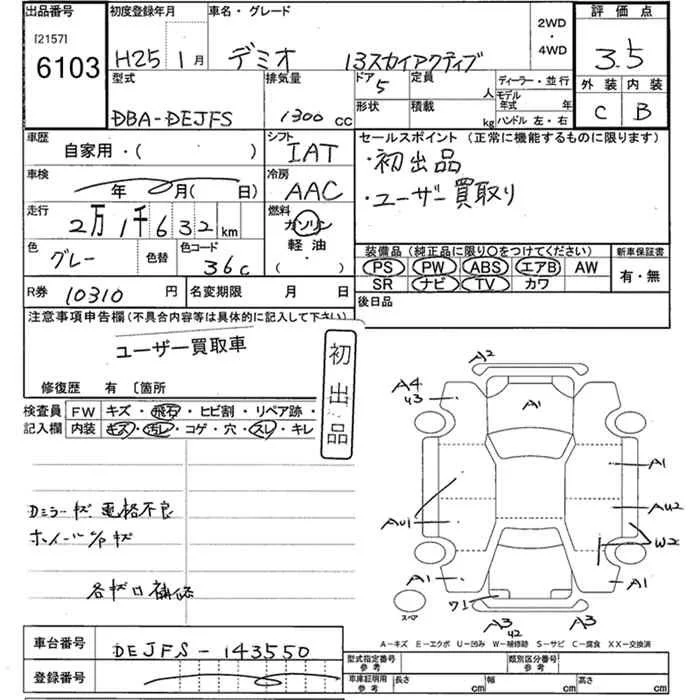 出品番号 初度登録年月 車名・グレード 2WD・4WD 評価点
[2157]
6103
H25 1月 デミオ 13スカイアクティブ 3.5
型式 排気量 ドア 5 定員 人 ディーラー・並行 外装 内装
DBA-DEJFS 1300 cc 形状 積載 kg モデル年式 年 ハンドル 左・右 C B
車歴 自家用・( ) シフト IAT セールスポイント (正常に機能するものに限ります)
・初出品
車検 年 月( 日) 冷房 AAC ・ユーザー買取り
走行 2万1千632km 燃料 ガソリン
軽油
( )
色 グレー 色替 色コード 36C
装備品 (純正品に限り○をつけてください) 新車保証書
PS PW ABS エアB AW 有・無
SR ナビ TV カワ
R券 10310 円 名変期限 月 日 後日品
注意事項申告欄(不具合内容等は具体的に記入して下さい)
ユーザー買取車
初出品
修復歴 有 〔箇所
検査員記入欄 FW キズ・飛石・ヒビ割・リペア跡・
内装 キズ・汚レ・コゲ・穴・スレ・キレ
Dミラーキズ 格不良
ホイールキズ
各キズ補修
A2
A4
A1
A1
AU1
AU2
W2
A1
A1
ワ1
A3
A3
スペア
A-キズ E-エクボ U-凹み W-補修跡 S-サビ C-腐食 XX-交換済
車台番号 DEJFS-143550
登録番号
型式指定番号 参考 類別区分番号 参考
車庫証明用 参考 長さ cm 幅 cm 高さ cm